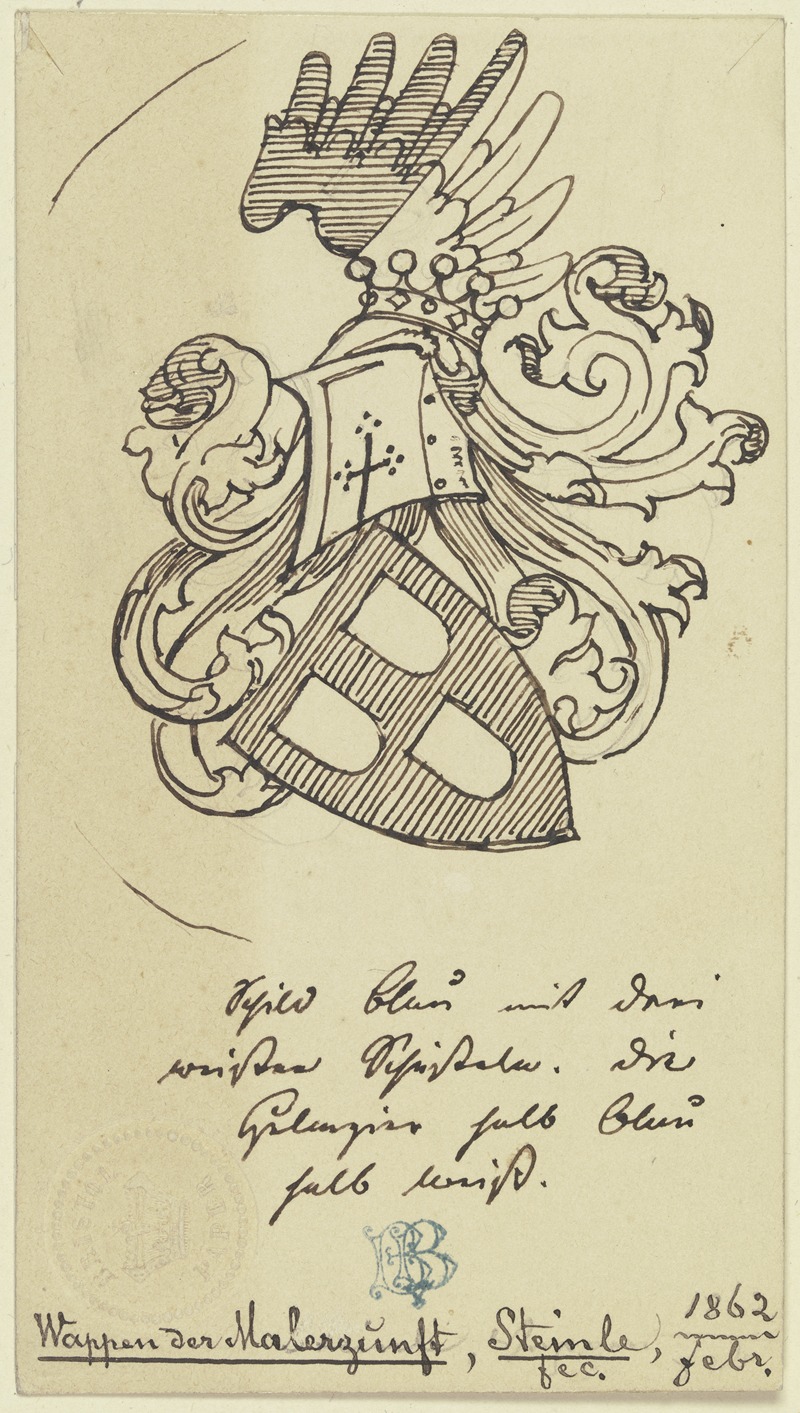 Schild blau mit drei
weißen Schilteln. die
Helmzier halb blau
halb weiß.
Wappen der Malerzunft, Steinle, 1862
fec. Febr.